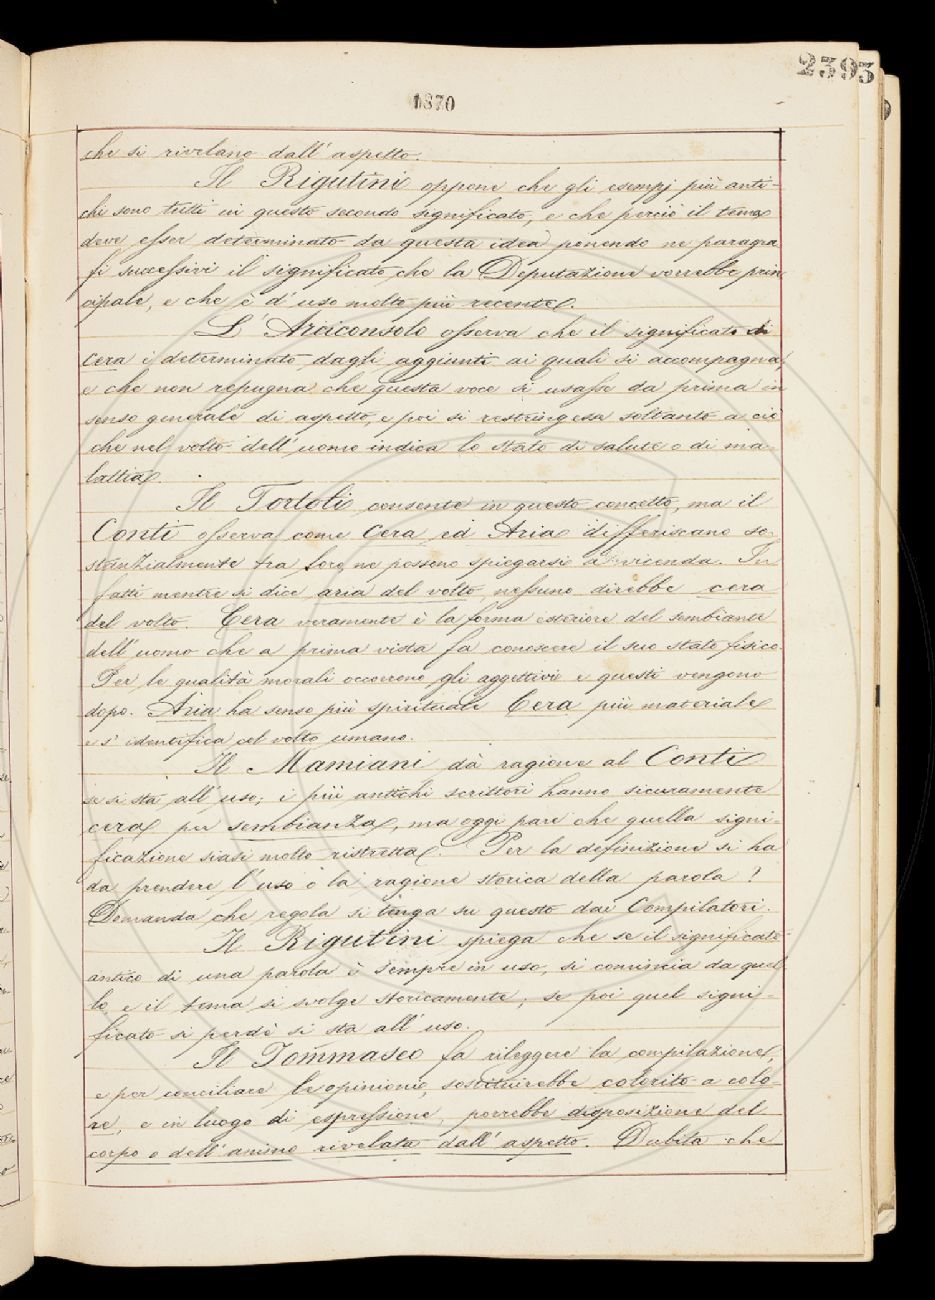 2393
1870
che si rivelano dall'aspetto.
Il Rigutini oppone che gli esempj più anti-
chi sono tutti in questo secondo significato, e che perciò il tema
deve esser determinato da questa idea ponendo ne paragra
fi successivi il significato che la Deputazione vorrebbe prin
cipale, e che è d'uso molto più recente.
L'Arciconsolo osserva che il significato di
cera è determinato dagli aggiunti ai quali si accompagna,
e che non repugna che questa voce si usasse da prima in
senso generale di aspetto, e poi si restringesse soltanto a ciò
che nel volto dell'uomo indica lo stato di salute o di ma-
lattia.
Il Tortoli consente in questo concetto, ma il
Conti osserva come Cera ed Aria differiscano so-
stanzialmente tra loro, ne possono spiegarsi a vicenda. In
fatti mentre si dice aria del volto nessuno direbbe cera
del volto. Cera veramente è la forma esteriore del sembiante
dell'uomo che a prima vista fa conoscere il suo stato fisico.
Per le qualità morali occorrono gli aggettivi e questi vengono
dopo. Aria ha senso più spirituale Cera più materiale
e s'identifica col volto umano.
Il Mamiani dà ragione al Conti
se si sta all'uso; i più antichi scrittori hanno sicuramente
cera per sembianza, ma oggi pare che quella signi-
ficazione siasi molto ristretta. Per la definizione si ha
da prendere l'uso o la ragione storica della parola?
Domanda che regola si tenga su questo dai Compilatori.
Il Rigutini spiega che se il significato
antico di una parola è sempre in uso, si comincia da quel
lo e il tema si svolge storicamente; se poi quel signi-
ficato si perdè si sta all'uso.
Il Tommaseo fa rileggere la compilazione,
e per conciliare le opinioni, sostituirebbe colorito a colo-
re, e in luogo di espressione, porrebbe disposizione del
corpo o dell'animo rivelata dall'aspetto. Dubita che